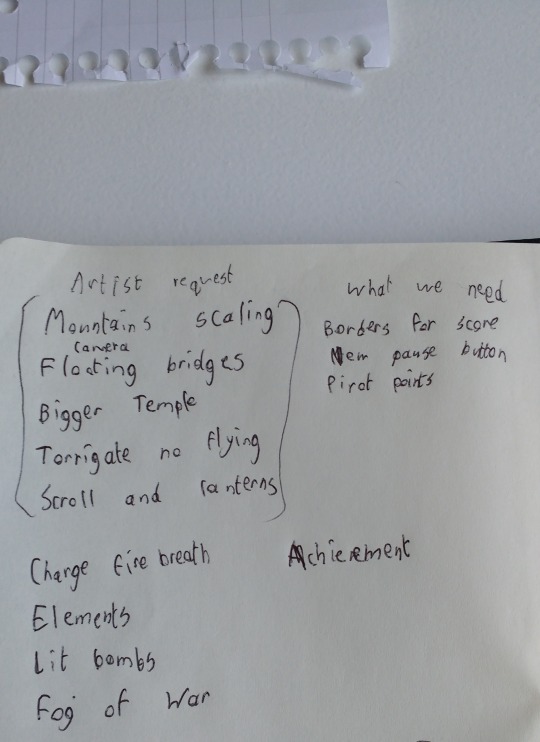 Artist request
Mountains scaling
camera
Floating bridges
Bigger Temple
Torrigate no flying
Scroll and lanterns
what we need
Borders for score
New pause button
Pivot points
Charge fire breath
Elements
Lit bombs
Fog of War
Achievement